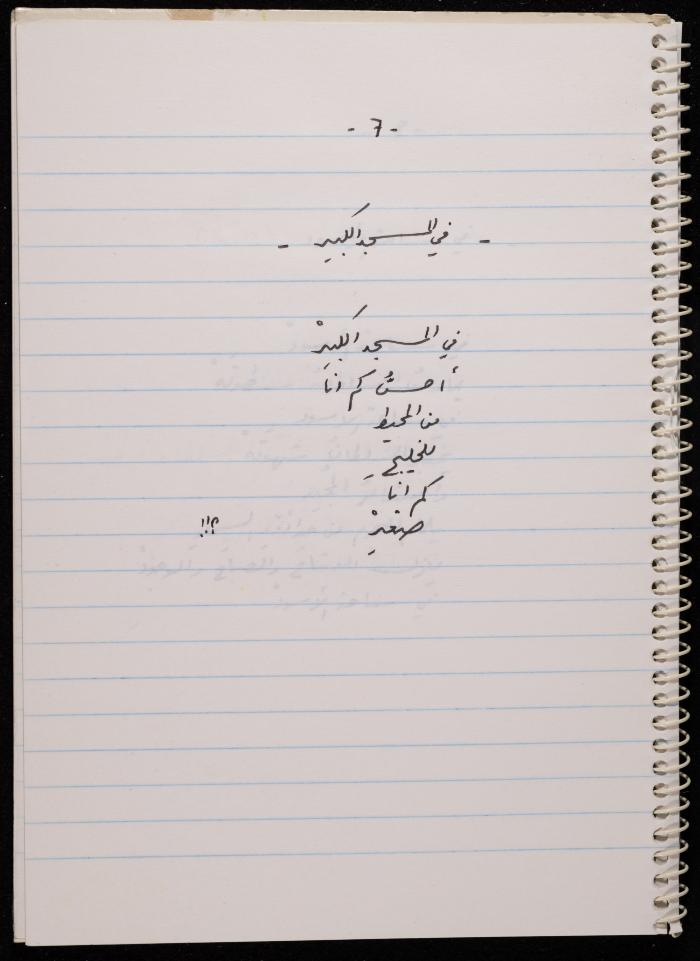 - 7 -
- في المسجد الكبير -
في المسجد الكبيرْ
أحسُّ كم أنا
من المحيط
للخليجِ
كم أنا
صغيرْ ؟!!